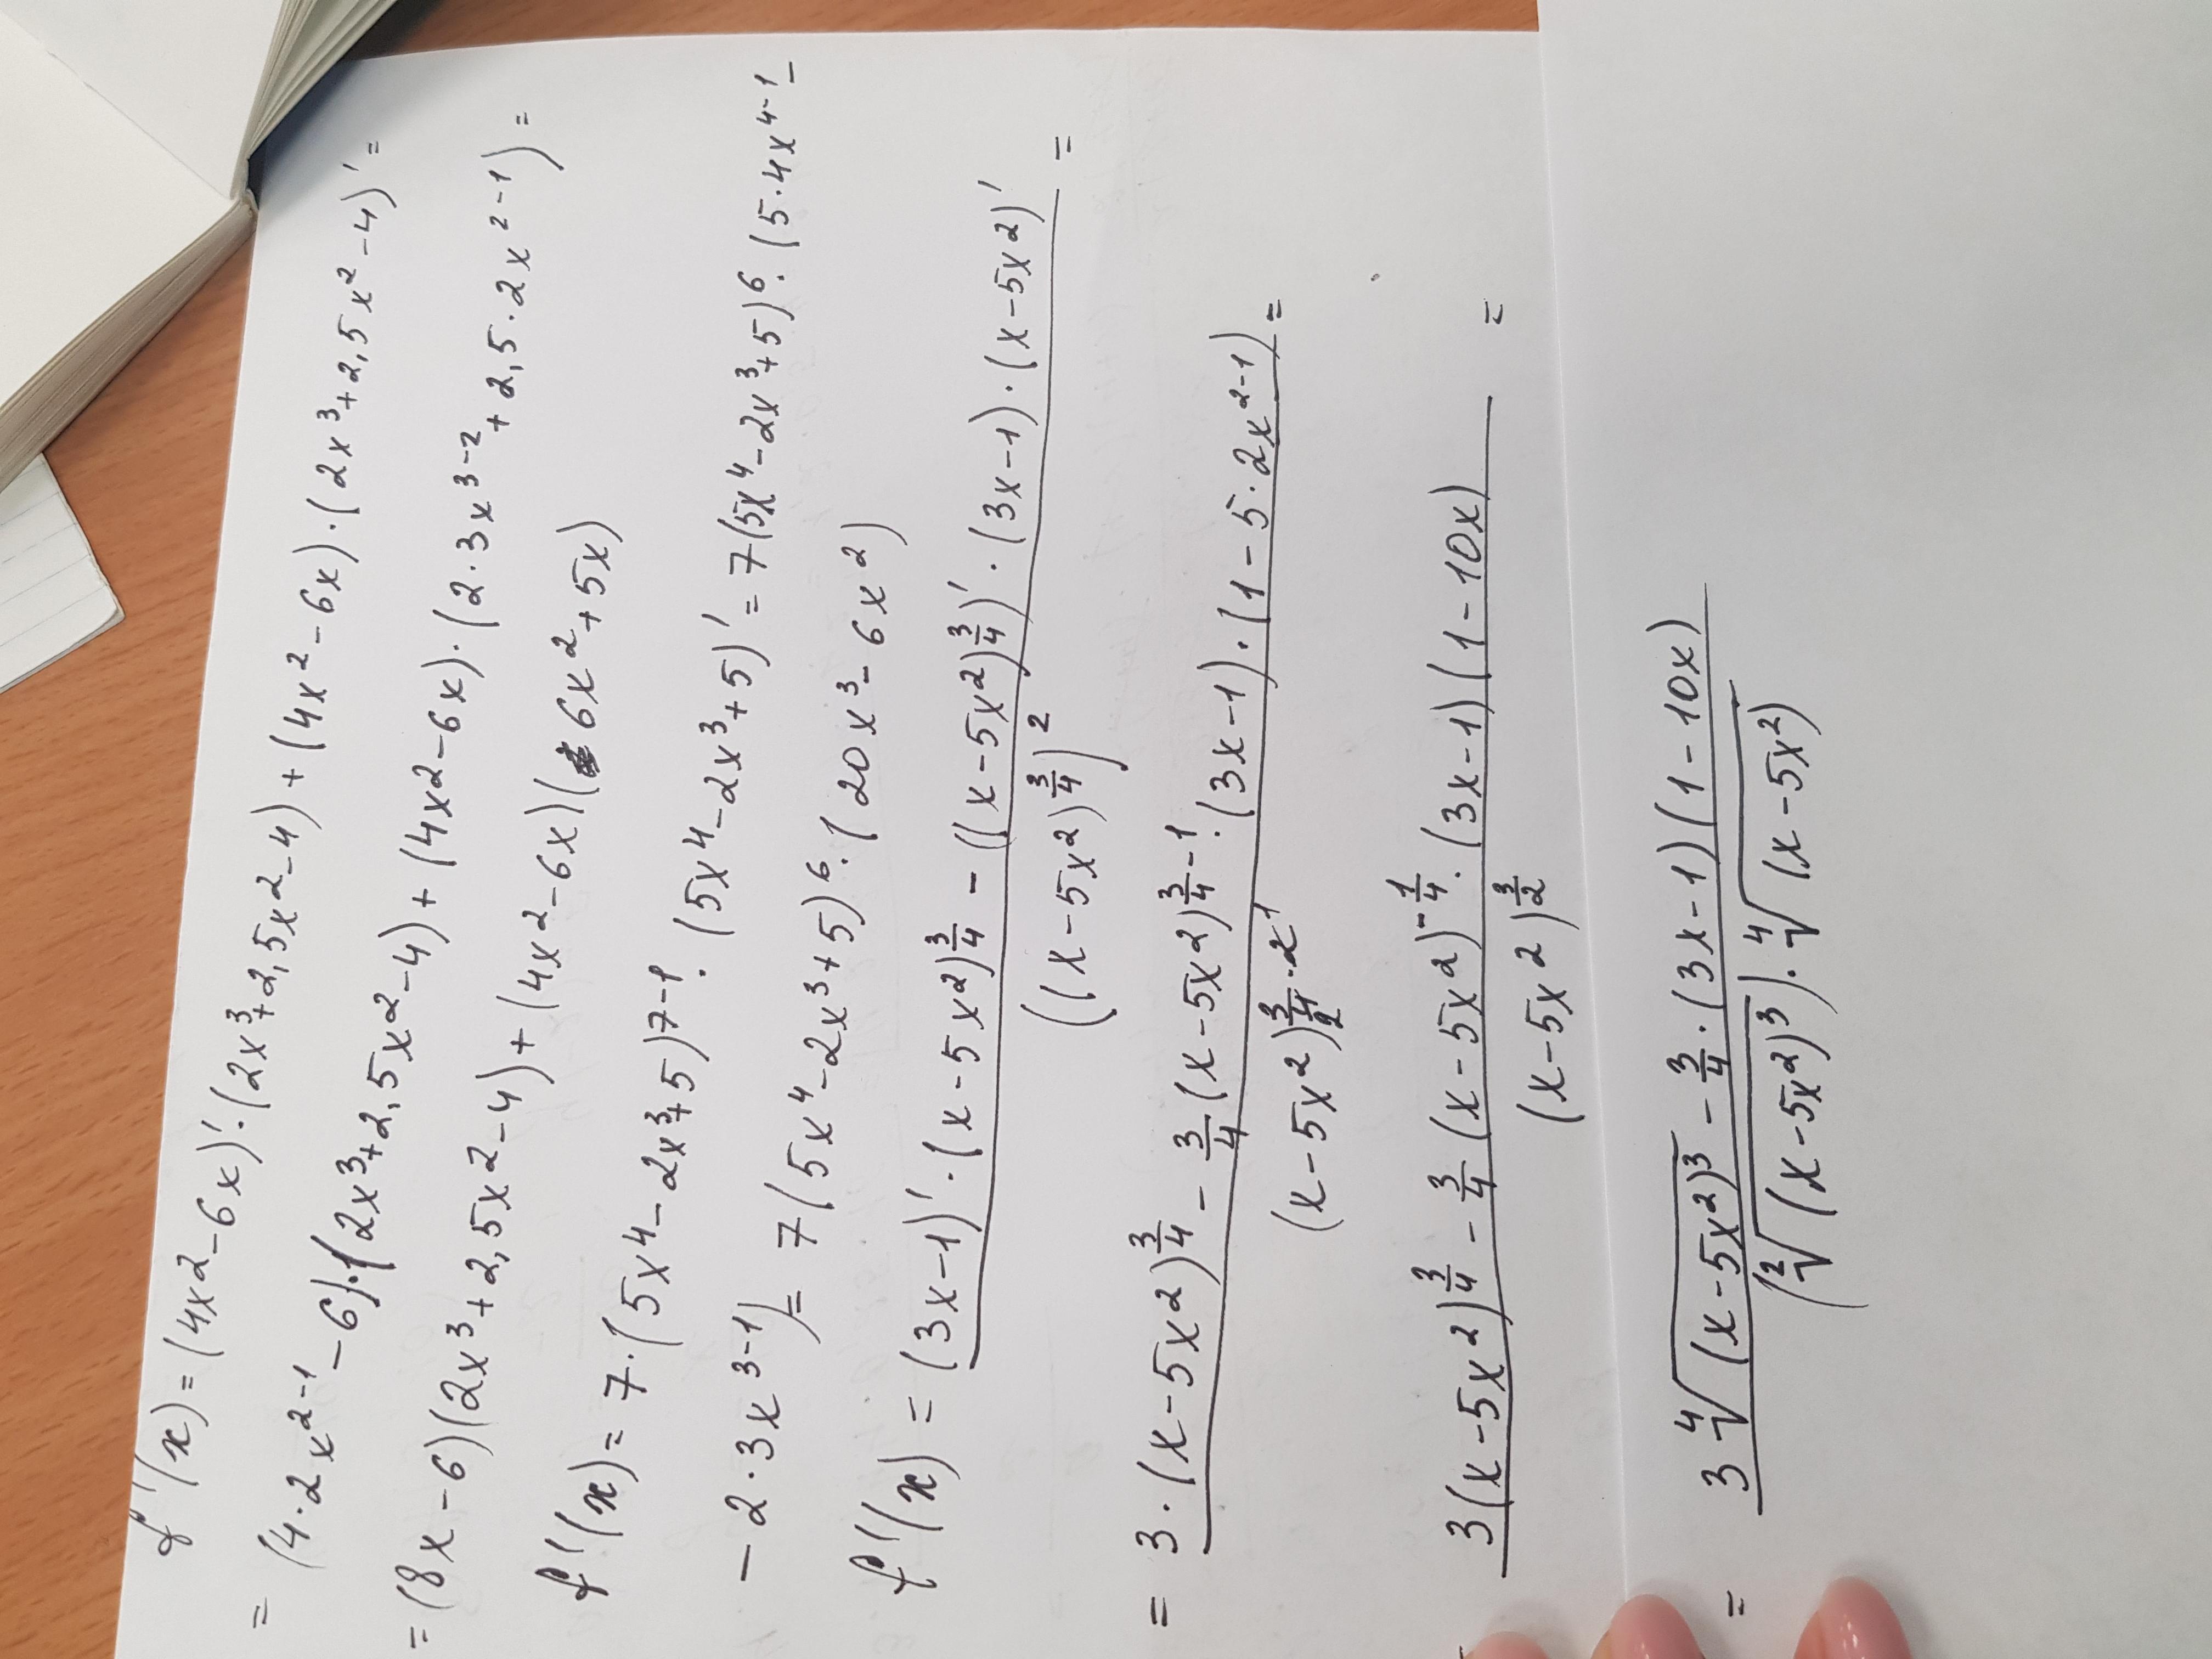 f'(x) = (4x² - 6x)'·(2x³ + 2,5x² - 4) + (4x² - 6x)·(2x³ + 2,5x² - 4)' =
= (4·2x²⁻¹ - 6)·(2x³ + 2,5x² - 4) + (4x² - 6x)·(2·3x³⁻² + 2,5·2x²⁻¹) =
= (8x - 6)(2x³ + 2,5x² - 4) + (4x² - 6x)(6x² + 5x)
f'(x) = 7·(5x⁴ - 2x³ + 5)⁷⁻¹·(5x⁴ - 2x³ + 5)' = 7(5x⁴ - 2x³ + 5)⁶·(5·4x⁴⁻¹ -
- 2·3x³⁻¹) = 7(5x⁴ - 2x³ + 5)⁶·(20x³ - 6x²)
f'(x) = (3x-1)'·(x - 5x²)^(3/4) - ((x - 5x²)^(3/4))'·(3x-1)·(x - 5x²)' =
((x - 5x²)^(3/4))²
= 3·(x - 5x²)^(3/4) - 3/4(x - 5x²)^(3/4 - 1)·(3x-1)·(1 - 5·2x²⁻¹) =
(x - 5x²)^(3/4·2)
3(x - 5x²)^(3/4) - 3/4·(x - 5x²)^(-1/4)·(3x-1)(1 - 10x) =
(x - 5x²)^(3/2)
= 3 ⁴√(x - 5x²)³ - 3/4·(3x-1)(1 - 10x)
(²√(x - 5x²)³)·⁴√(x - 5x²)